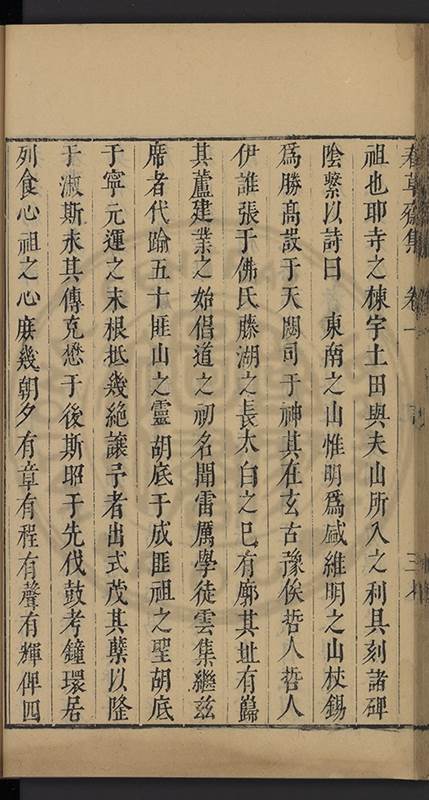 春草齋集 卷十
祖也耶寺之棟宇土田與夫山所入之利具刻諸碑
陰繫以詩曰 東南之山惟明爲咸維明之山杖錫
爲勝髙設于天闕司于神其在玄古豫俟哲人哲人
伊誰張于佛氏藤湖之長太白之巳有廓其址有巋
其蘆建業之始倡道之初名聞雷厲學徒雲集繼茲
席者代踰五十匪山之靈胡底于成匪祖之聖胡底
于寧元運之末根抵幾絶讓予者出式茂其孽以隆
于淑斯永其傳克懋于後斯昭于先伐鼓考鐘環居
列食心祖之心庶幾朝夕有章有程有聲有輝俾四